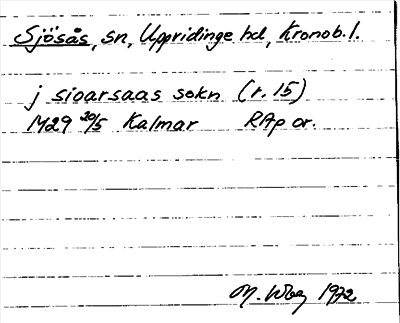 Sjösås, sn, Uppvidinge hd, Kronob. l.
j sioarsaas sokn (r. 15)
1429 20/5 Kalmar RAp or.
M. 1972